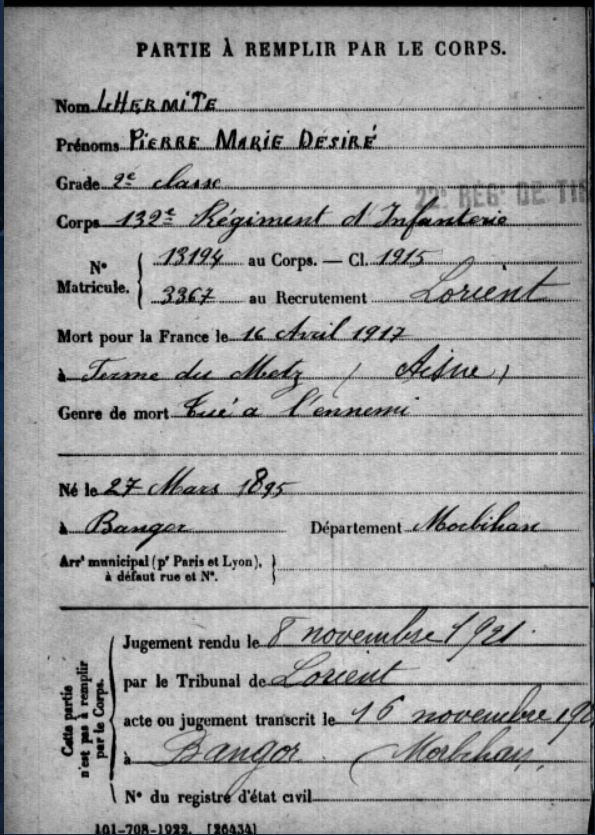 PARTIE À REMPLIR PAR LE CORPS.
Nom LHERMITE
Prénoms PIERRE MARIE DÉSIRÉ
Grade 2e classe
22e RÉGt DE TIR
Corps 132e Régiment d'Infanterie
No Matricule. { 13194 au Corps. — Cl. 1915
3367 au Recrutement Lorient
Mort pour la France le 16 Avril 1917
à Ferme du Metz ( Aisne )
Genre de mort Tué a l'ennemi
Né le 27 Mars 1895
à Bangor Département Morbihan
Arrt municipal (pr Paris et Lyon), }
à défaut rue et No.
Cette partie n'est pas à remplir par le Corps.
Jugement rendu le 8 novembre 1921.
par le Tribunal de Lorient
acte ou jugement transcrit le 16 novembre 192
à Bangor (Morbihan)
No du registre d'état civil
101-708-1922. [26434]